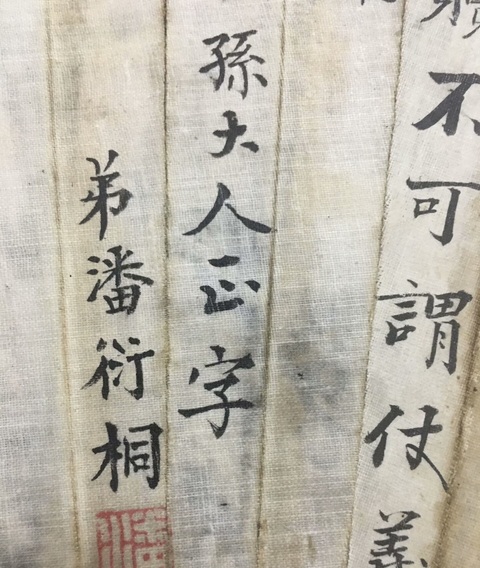 不可謂仗義
孫大人正字
弟潘衍桐